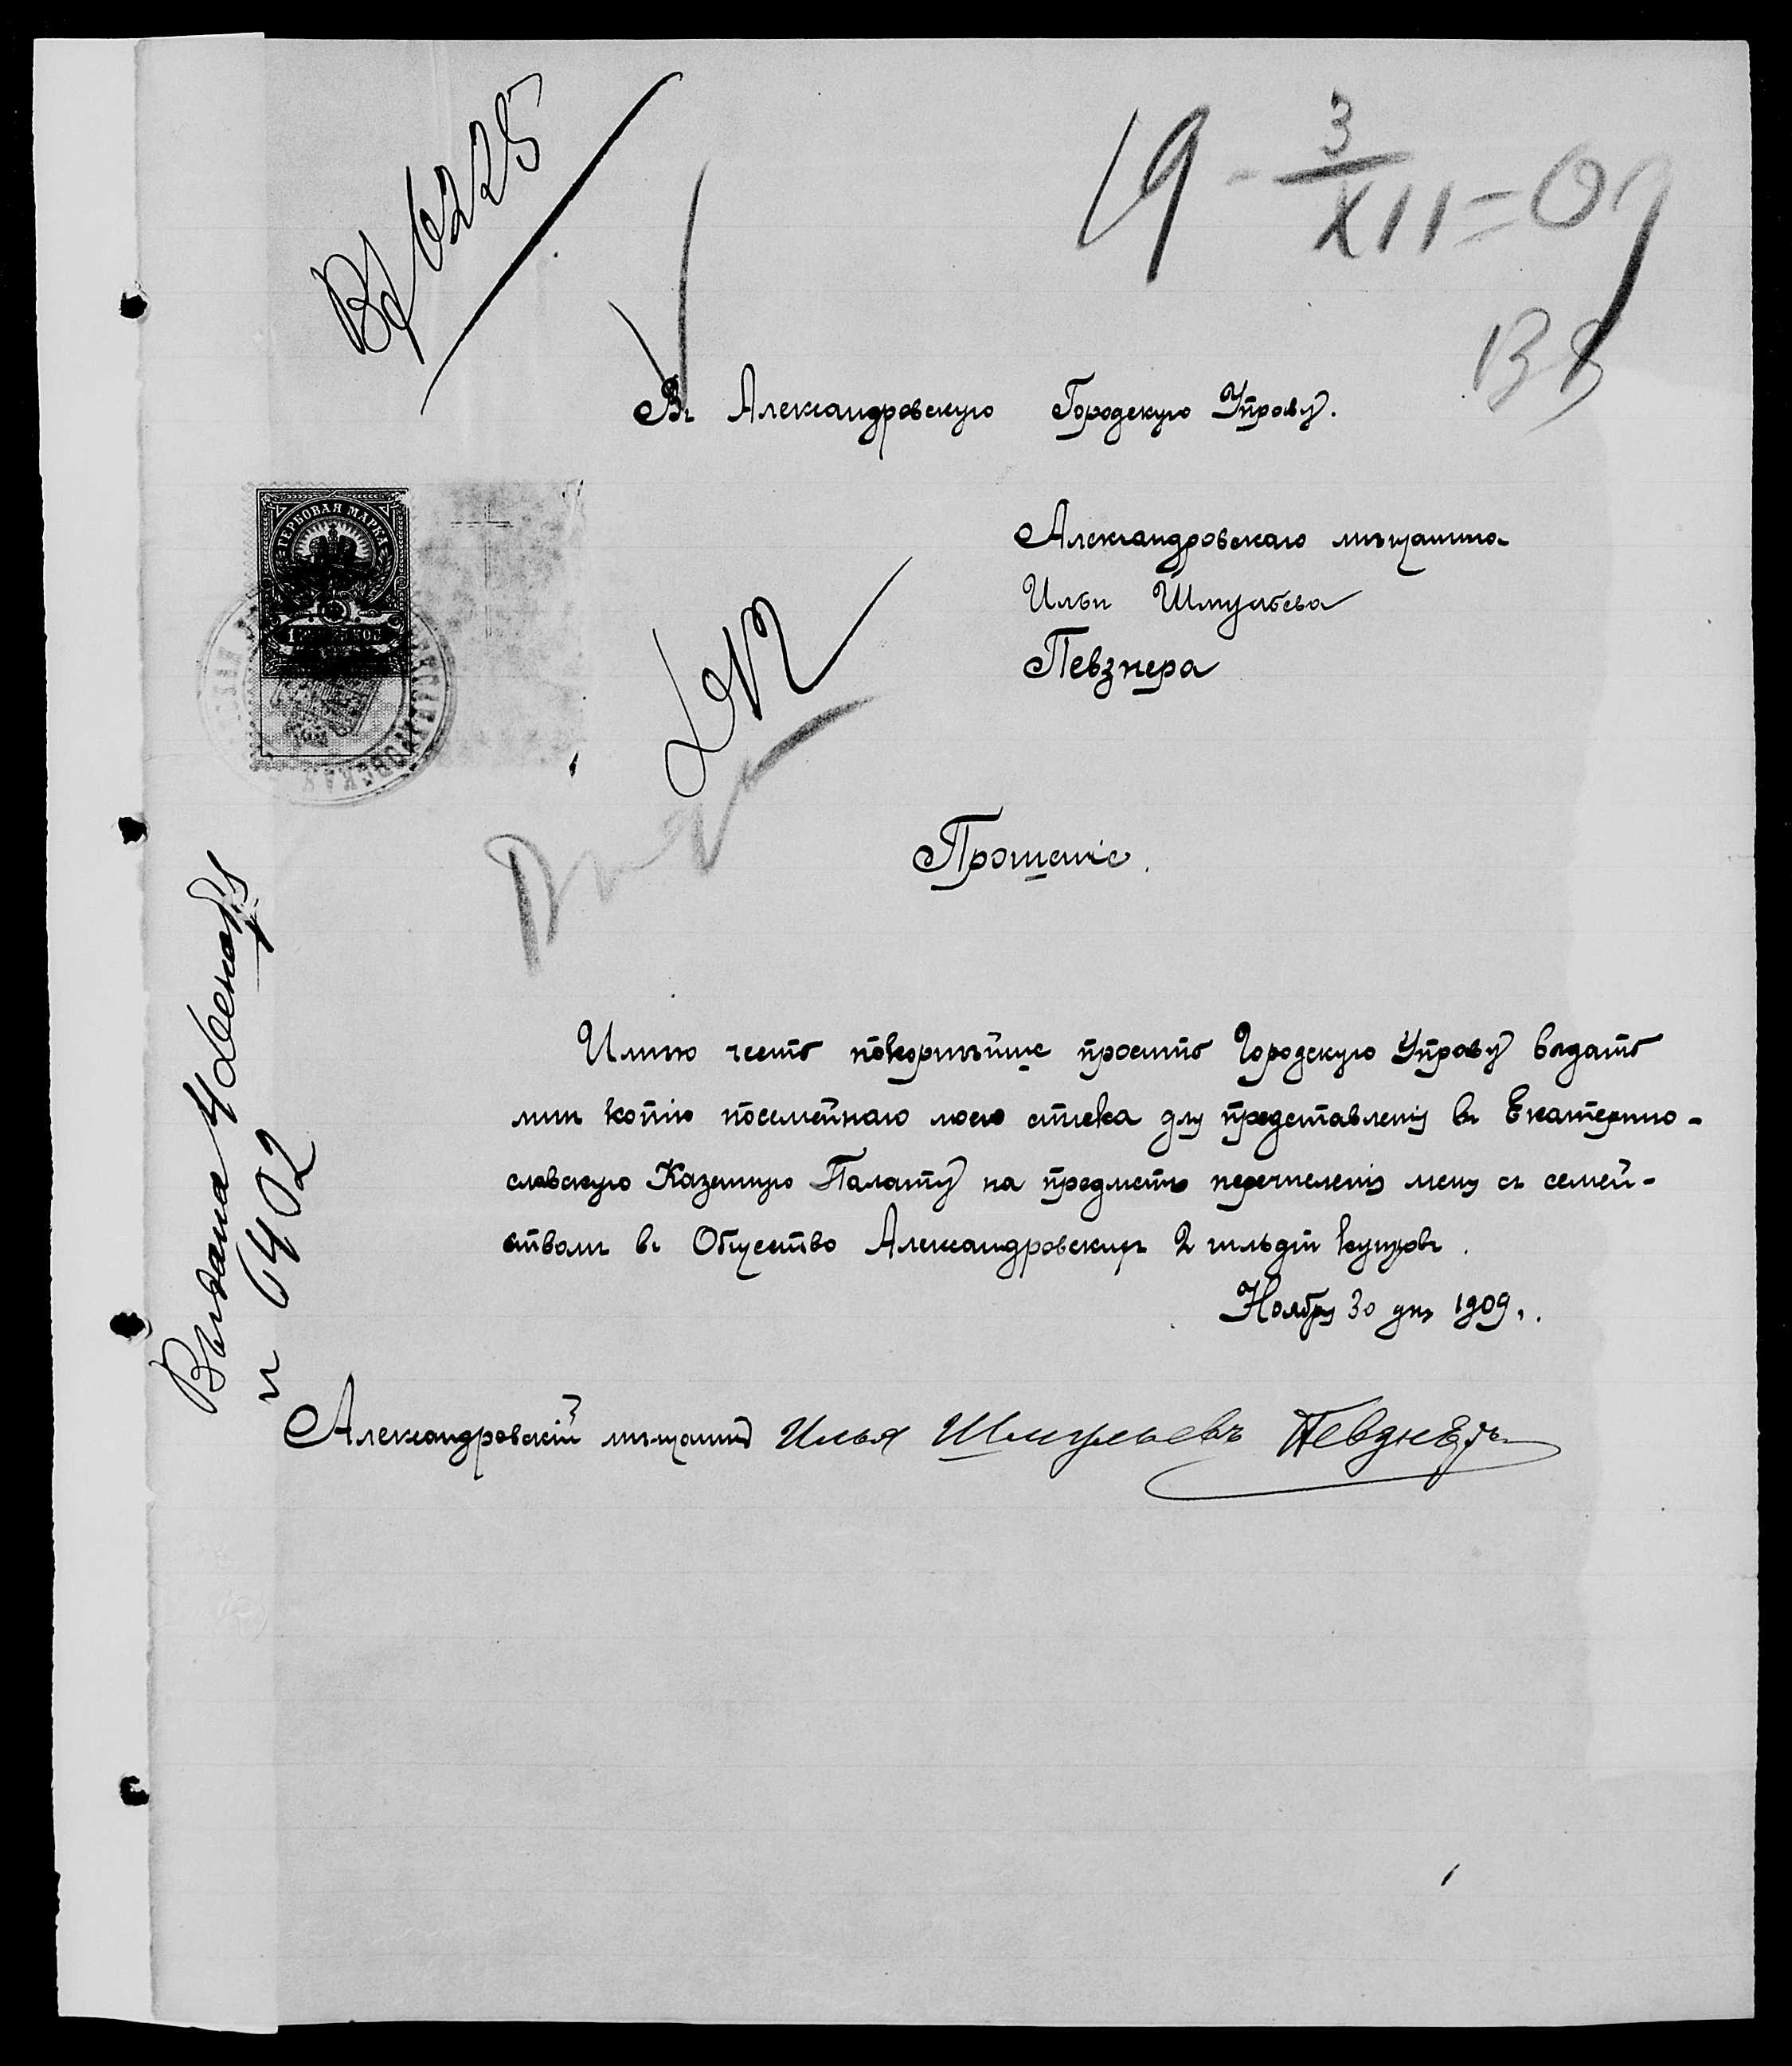 6225
19 - 3/XII = 09
Въ Александровскую Городскую Управу.
ГЕРБОВАЯ МАРКА
Александровскаго мѣщанина
Ильи Шмульева
Певзнера
Прошеніе.
Имѣю честь покорнѣйше просить Городскую Управу выдать
мнѣ копію посемейнаго моего списка для представленія въ Екатерино-
славскую Казенную Палату на предметъ перечисленія меня съ семей-
ствомъ въ Общество Александровскихъ 2 гильдіи купцовъ.
Ноября 30 дня 1909.
Александровскій мѣщанинъ Илья Шмульевъ Певзнеръ
Выдана 4 декабря
№ 6402